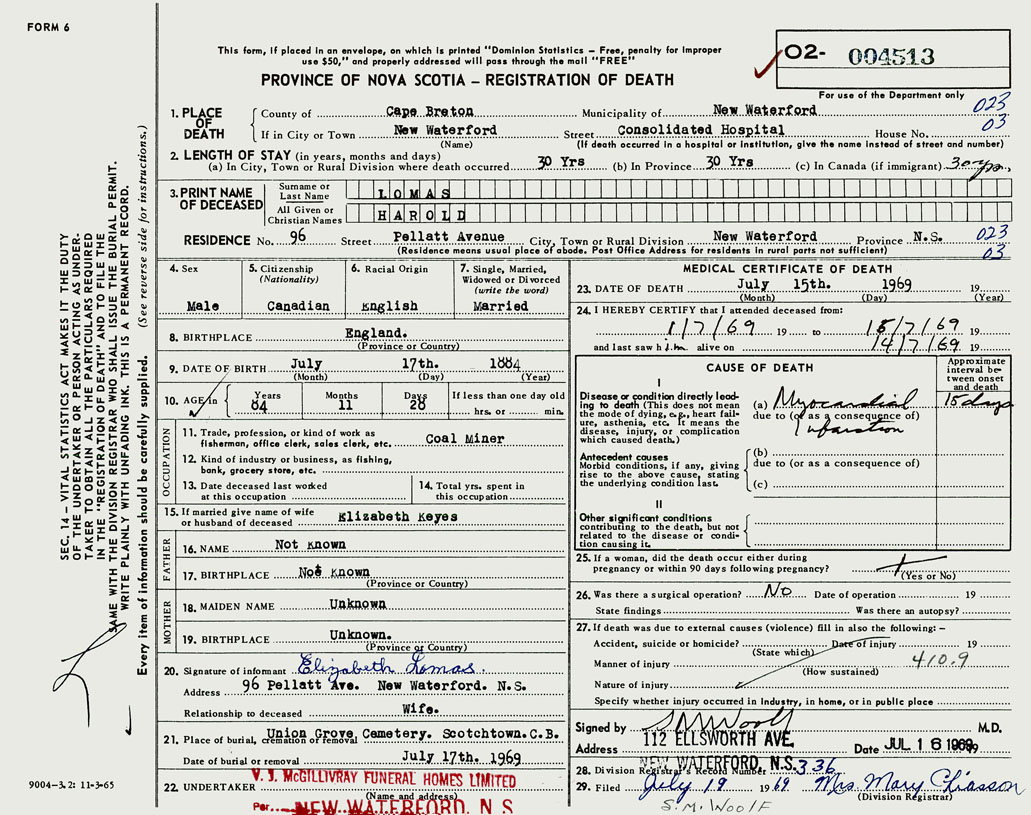 FORM 6
This form, if placed in an envelope, on which is printed "Dominion Statistics – Free, penalty for improper
use $50," and properly addressed will pass through the mail "FREE"
PROVINCE OF NOVA SCOTIA – REGISTRATION OF DEATH
O2- 004513
For use of the Department only
1. PLACE OF DEATH
County of Cape Breton Municipality of New Waterford 023
If in City or Town New Waterford Street Consolidated Hospital House No. 03
(Name) (If death occurred in a hospital or institution, give the name instead of street and number)
2. LENGTH OF STAY (in years, months and days)
(a) In City, Town or Rural Division where death occurred 30 Yrs (b) In Province 30 Yrs (c) In Canada (if immigrant) 30 yrs.
3. PRINT NAME OF DECEASED
Surname or Last Name LOMAS
All Given or Christian Names HAROLD
RESIDENCE No. 96 Street Pellatt Avenue City, Town or Rural Division New Waterford Province N.S. 023
(Residence means usual place of abode. Post Office Address for residents in rural parts not sufficient) 03
4. Sex
Male
5. Citizenship
(Nationality)
Canadian
6. Racial Origin
English
7. Single, Married,
Widowed or Divorced
(write the word)
Married
8. BIRTHPLACE England.
(Province or Country)
9. DATE OF BIRTH July 17th. 1884
(Month) (Day) (Year)
10. AGE in Years Months Days If less than one day old
84 11 28 hrs. or min.
OCCUPATION
11. Trade, profession, or kind of work as
fisherman, office clerk, sales clerk, etc. Coal Miner
12. Kind of industry or business, as fishing,
bank, grocery store, etc.
13. Date deceased last worked
at this occupation
14. Total yrs. spent in
this occupation
15. If married give name of wife
or husband of deceased Elizabeth Keyes
FATHER
16. NAME Not Known
17. BIRTHPLACE Not Known
(Province or Country)
MOTHER
18. MAIDEN NAME Unknown
19. BIRTHPLACE Unknown.
(Province or Country)
20. Signature of informant Elizabeth Lomas.
Address 96 Pellatt Ave. New Waterford. N.S.
Relationship to deceased Wife.
21. Place of burial, cremation or removal Union Grove Cemetery. Scotchtown.C.B.
Date of burial or removal July 17th. 1969
22. UNDERTAKER V. J. McGILLIVRAY FUNERAL HOMES LIMITED
(Name and address)
Per NEW WATERFORD, N S
MEDICAL CERTIFICATE OF DEATH
23. DATE OF DEATH July 15th. 1969 19
(Month) (Day) (Year)
24. I HEREBY CERTIFY that I attended deceased from:
1/7/69 19 to 15/7/69 19
and last saw him alive on 14/7/69 19
CAUSE OF DEATH
Approximate
interval be-
tween onset
and death
I
Disease or condition directly lead-
ing to death (This does not
mean the mode of dying, e.g., heart fail-
ure, asthenia, etc. It means the
disease, injury, or complication
which caused death.)
(a) Myocardial 15 days
due to (or as a consequence of)
Infarction
Antecedent causes
Morbid conditions, if any, giving
rise to the above cause, stating
the underlying condition last.
(b)
due to (or as a consequence of)
(c)
II
Other significant conditions
contributing to the death, but not
related to the disease or condi-
tion causing it.
25. If a woman, did the death occur either during
pregnancy or within 90 days following pregnancy?
(Yes or No)
26. Was there a surgical operation? No Date of operation 19
State findings Was there an autopsy?
27. If death was due to external causes (violence) fill in also the following: –
Accident, suicide or homicide? Date of injury 19
(State which)
Manner of injury 410.9
(How sustained)
Nature of injury
Specify whether injury occurred in industry, in home, or in public place
Signed by S M Woolf M.D.
Address 112 ELLSWORTH AVE. Date JUL 16 1969
NEW WATERFORD, N.S.
28. Division Registrar's Record Number 336
29. Filed July 19 1969 Mrs. Mary Chiasson
(Division Registrar)
S. M. WOOLF
SEC. 14 – VITAL STATISTICS ACT MAKES IT THE DUTY
OF THE UNDERTAKER OR PERSON ACTING AS UNDER-
TAKER TO OBTAIN ALL THE PARTICULARS REQUIRED
IN THE "REGISTRATION OF DEATH" AND TO FILE THE
SAME WITH THE DIVISION REGISTRAR WHO SHALL ISSUE THE BURIAL PERMIT.
WRITE PLAINLY WITH UNFADING INK. THIS IS A PERMANENT RECORD.
Every item of information should be carefully supplied. (See reverse side for instructions.)
9004–3.2: 11-3-65